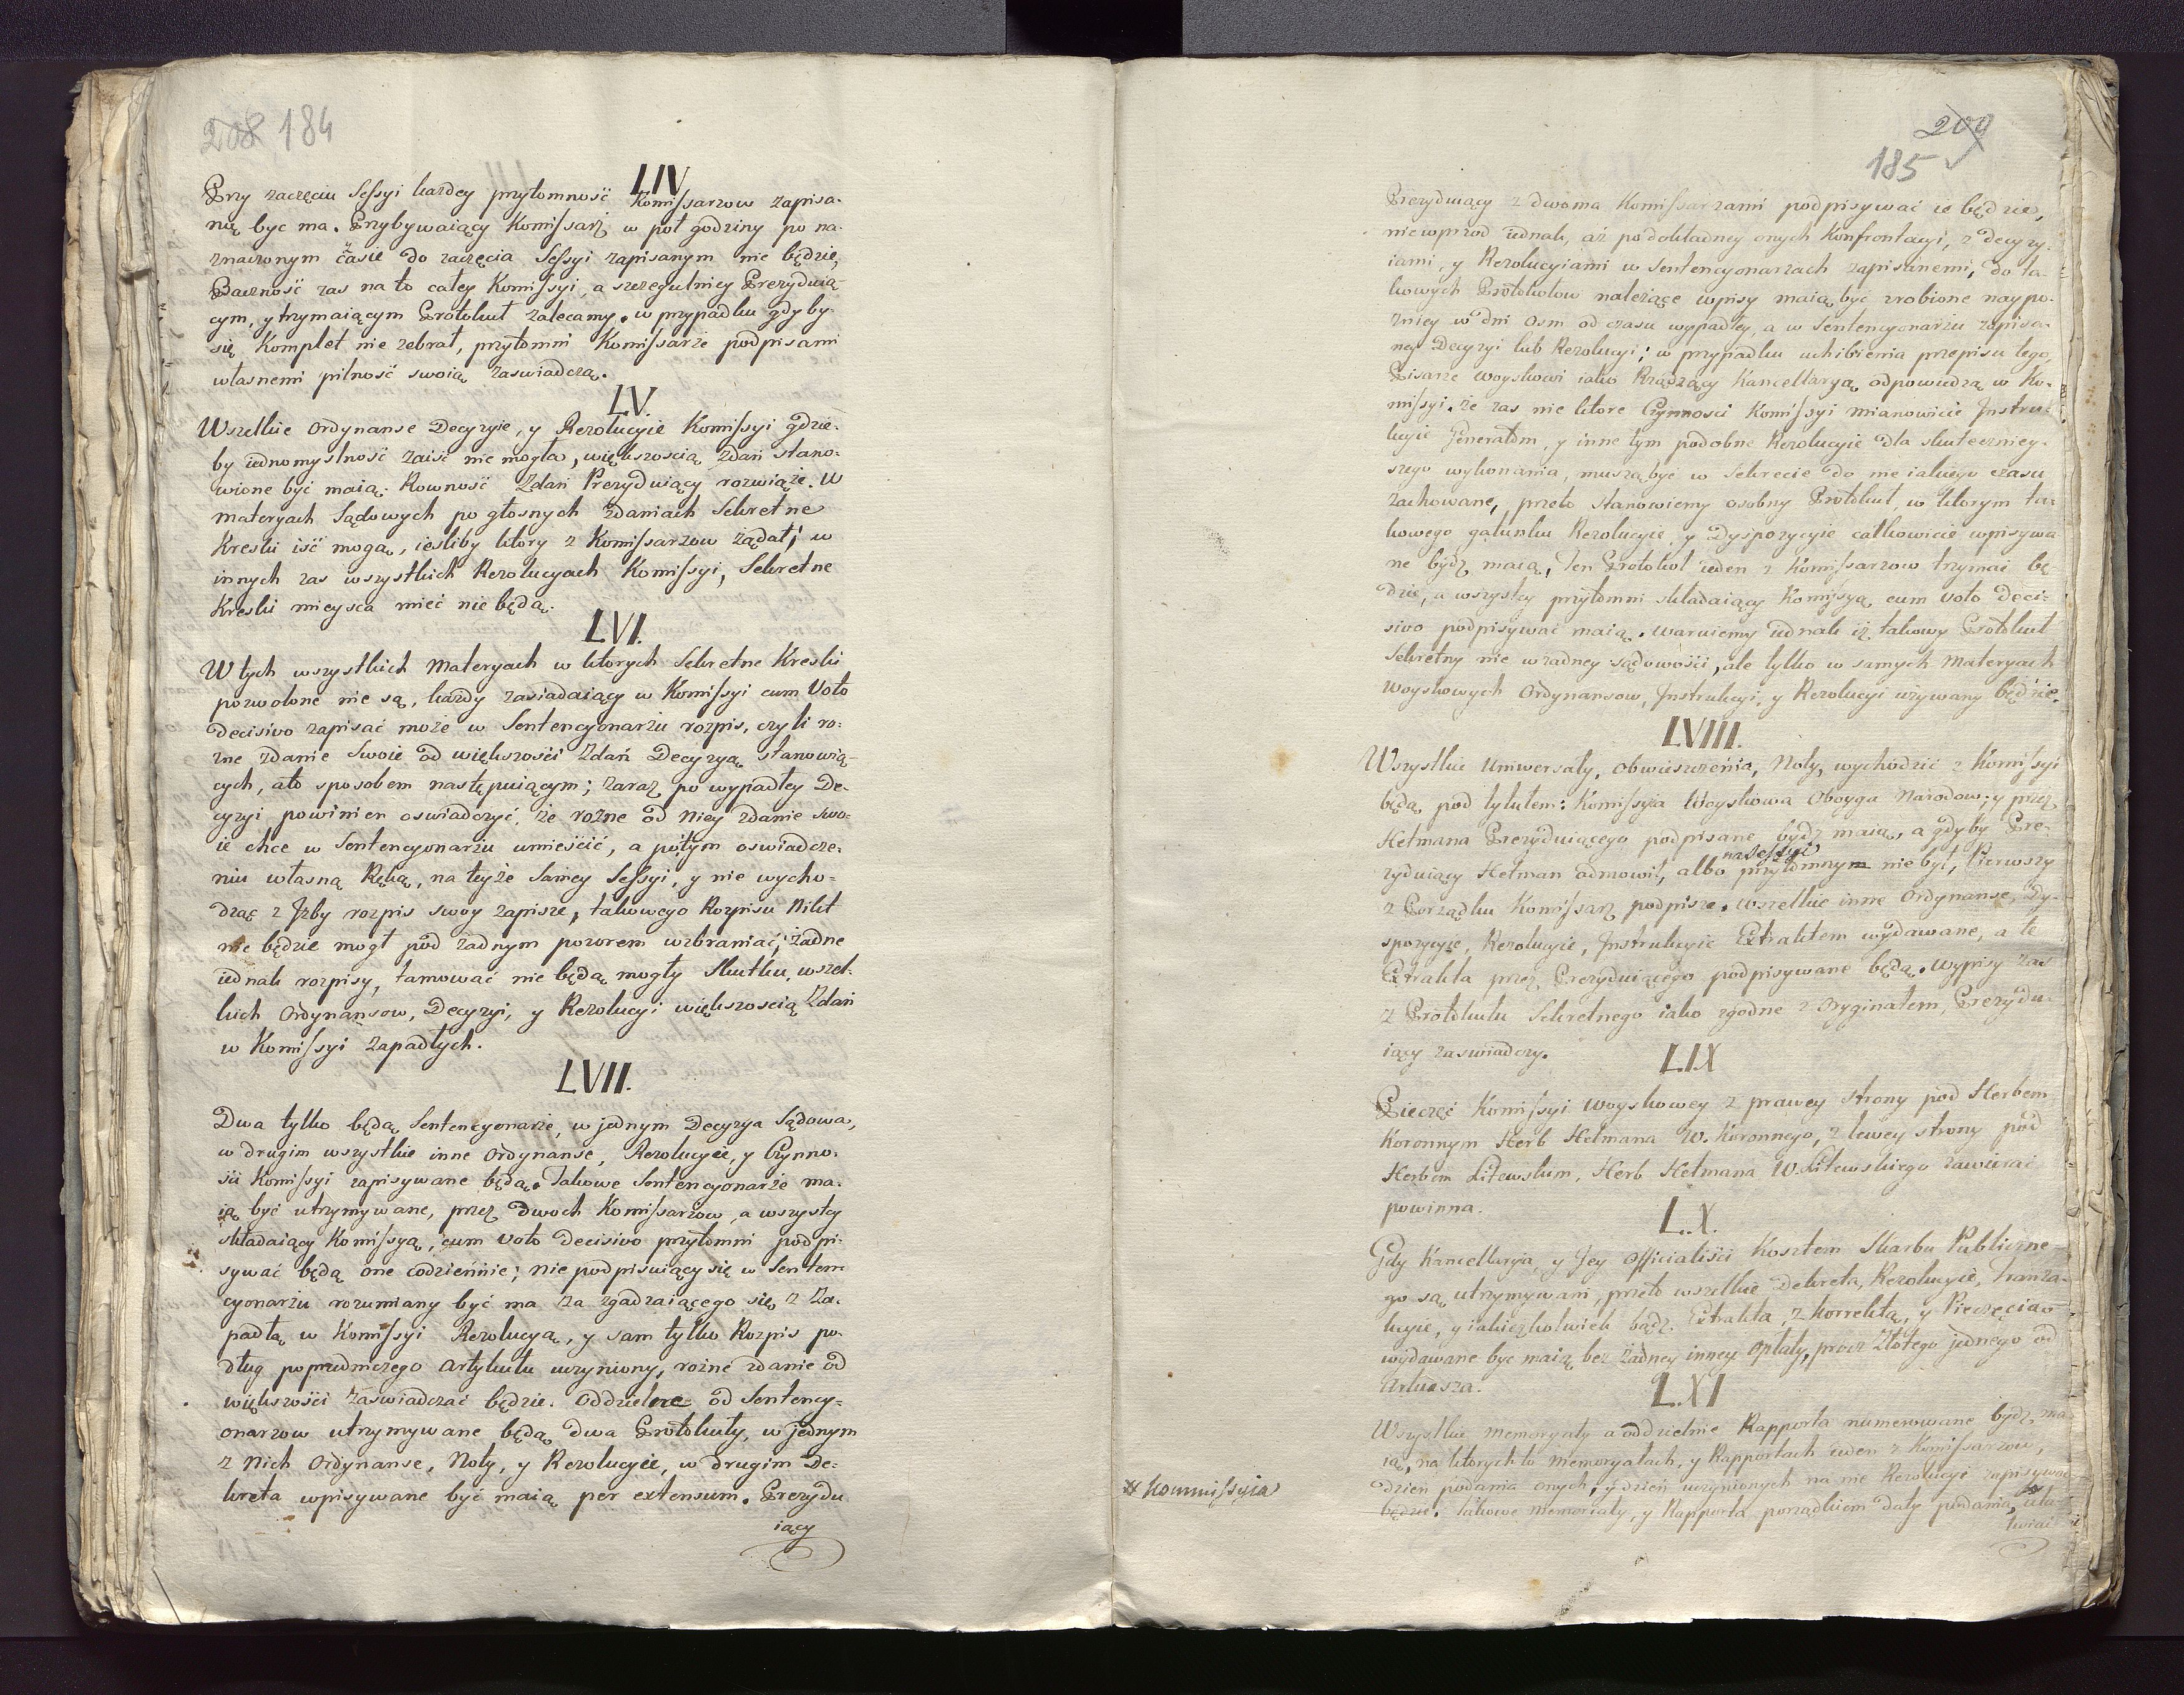 208 184
LIV
Przy zaczęciu Sessyi każdey przytomność Komissarzow zapisa-
ną byc ma. Przybywaiący Komissarz w poł godziny po na-
znaczonym czasie do zaczęcia Sessyi zapisanym nie będzie,
Baczność zas na to całey Komissyi, a szczegulniey Prezyduią-
cym, y trzymaiącym Protokuł zalecamy. w przypadku gdyby
się Komplet nie zebrał, przytomni Komissarze podpisami
własnemi pilność swoią zaswiadczą.
LV.
Wszelkie Ordynanse Decyzyie, y Rezolucyie Komissyi gdzie-
by iednomyslność zaiść nie mogła, większoscią zdań stano-
wione być maią. Rowność Zdań Prezyduiący rozwiąże. W
materyach Sądowych po głosnych zdaniach Sekretne
Kreski iść mogą, iesliby ktory z Komissarzow żądał; w
innych zas wszystkich Rezolucyach Komissyi, Sekretne
Kreski mieysca mieć nie będą.
LVI.
W tych wszystkich Materyach w ktorych Sekretne Kreski
pozwolone nie są, każdy zasiadaiący w Komissyi cum Voto
decisivo zapisać może w Sentencyonarżu rozpis, czyli ro-
zne zdanie Swoie od większości Zdań Decyzyą stanowią-
cych, a to sposobem następuiącym; zaraz po wypadłey De-
cyzyi powinien oswiadczyć, że rożne od Niey zdanie swo-
ie chce w Sentencyonarżu umieścić, a potym oswiadcze-
niu własną Ręką, na teyże Samey Sessyi, y nie wycho-
dząc z Jzby rozpis swoy zapisze, takowego Rozpisu Nikt
nie będzie mogł pod żadnym pozorem wzbraniać; żadne
iednak rozpisy, tamować nie będą mogły Skutku, wszel-
kich Ordynansow, Decyzyi, y Rezolucyi większoscią Zdań
w Komissyi zapadłych.
LVII.
Dwa tylko będą Sentencyonarże, w jednym Decyzya Sądowa,
w drugim wszystkie inne Ordynanse, Rezolucyie, y Czynno-
sci Komissyi zapisywane będą. Takowe Sentencyonarże ma-
ią być utrzymywane, przez dwoch Komissarzow, a wszyscy
składaiący Komissyą, cum voto decisivo przytomni podpi-
sywać będą one codziennie; nie podpisuiący się w Senten
cyonarżu rozumiany być ma za zgadzaiącego się z Za-
padłą w Komissyi Rezolucyą, y sam tylko Rozpis po-
dług poprzedniczego Artykułu uczyniony, rożne zdanie od
większości zaswiadczać będzie. Oddzielne od Sentency-
onarzow utrzymywane będą dwa Protokuły, w jednym
z Nich Ordynanse, Noty, y Rezolucyie, w drugim De-
kreta wpisywane być maią per extensum. Prezydu
iący
209
185
Prezyduiący z dwoma Komissarzami podpisywać ie będzie,
niewprzod iednak, aż po dokładney onych Konfrontacyi, z decyzy-
iami, y Rezolucyiami w Sentencyonarzach zapisanemi, do ta-
kowych Protokołow należące wpisy maią być zrobione naypo-
zniey w dni osm od czasu wypadłey, a w Sentencyonarżu zapisa-
ney Decyzyi lub Rezolucyi; w przypadku uchibienia przepisu tego,
Pisarze Woyskowi iako Rządzący Kancellaryą odpowiedzą w Ko-
missyi. że zas nie ktore Czynności Komissyi mianowicie Jnstru-
kcyie Generałom, y inne tym podobne Rezolucyie dla skuteczniey-
szego wykonania, muszą być w Sekrecie do nie iakiego czasu
zachowane, przeto stanowiemy osobny Protokuł, w ktorym ta-
kowego gatunku Rezolucyie, y Dyspozycyie całkowicie wpisywa
ne bydz maią, Ten Protokoł ieden z Komissarzow trzymać bę
dzie, a wszyscy przytomni składaiący Komissyą cum voto deci-
sivo podpisywać maią. waruiemy iednak iż takowy Protokuł
Sekretny nie w żadney sądowości, ale tylko w samych Materyach
Woyskowych Ordynansow, Jnstrukcyi, y Rezolucyi używany będzie.
LVIII.
Wszystkie Uniwersały, obwieszczenia, Noty, wychodzić z Komissyi
będą pod tytułem: Komissyia Woyskowa Oboyga Narodow; y przez
Hetmana Prezyduiącego podpisane bydź maią, a gdyby Pre-
zyduiący Hetman odmowił, albo przytomnym na Sessyi nie był, Pierwszy
z Porządku Komissarz podpisze. wszelkie inne Ordynanse, Dy-
spozycyie, Rezolucyie, Jnstrukcyie Extraktem wydawane, a te
Extrakta przez Prezyduiącego podpisywane będą. wypisy zas
z Protokułu Sekretnego iako zgodne z Oryginałem, Prezydu-
iący zaswiadczy.
LIX
Pieczęć Komissyi Woyskowey z prawey strony pod Herbem
Koronnym Herb Hetmana W. Koronnego, z lewey strony pod
Herbem Litewskim, Herb Hetmana W. Litewskiego zawierać
powinna.
L.X.
Gdy Kancellarya, y Jey Officialiści Kosztem Skarbu Publiczne-
go są utrzymywani, przeto wszelkie Dekreta, Rezolucyie, Tranza-
kcyie, y iakieżkolwiek bądź Extrakta, z Korrektą, y Pieczęcią
wydawane byc maią bez żadney inney opłaty, procz Złotego jednego od
Arkusza.
L.XI
Wszystkie memoryały a oddzielnie Rapporta numerowane bydź ma
ią, na ktorych to memoryałach, y Rapportach ieden z Komissarzow,
dzień podania onych, y dzień uczynionych na nie Rezolucyi zapisywać
będzie. Takowe memoriały, y Rapporta porządkiem daty podania, uła
twiać
# Kommissyia